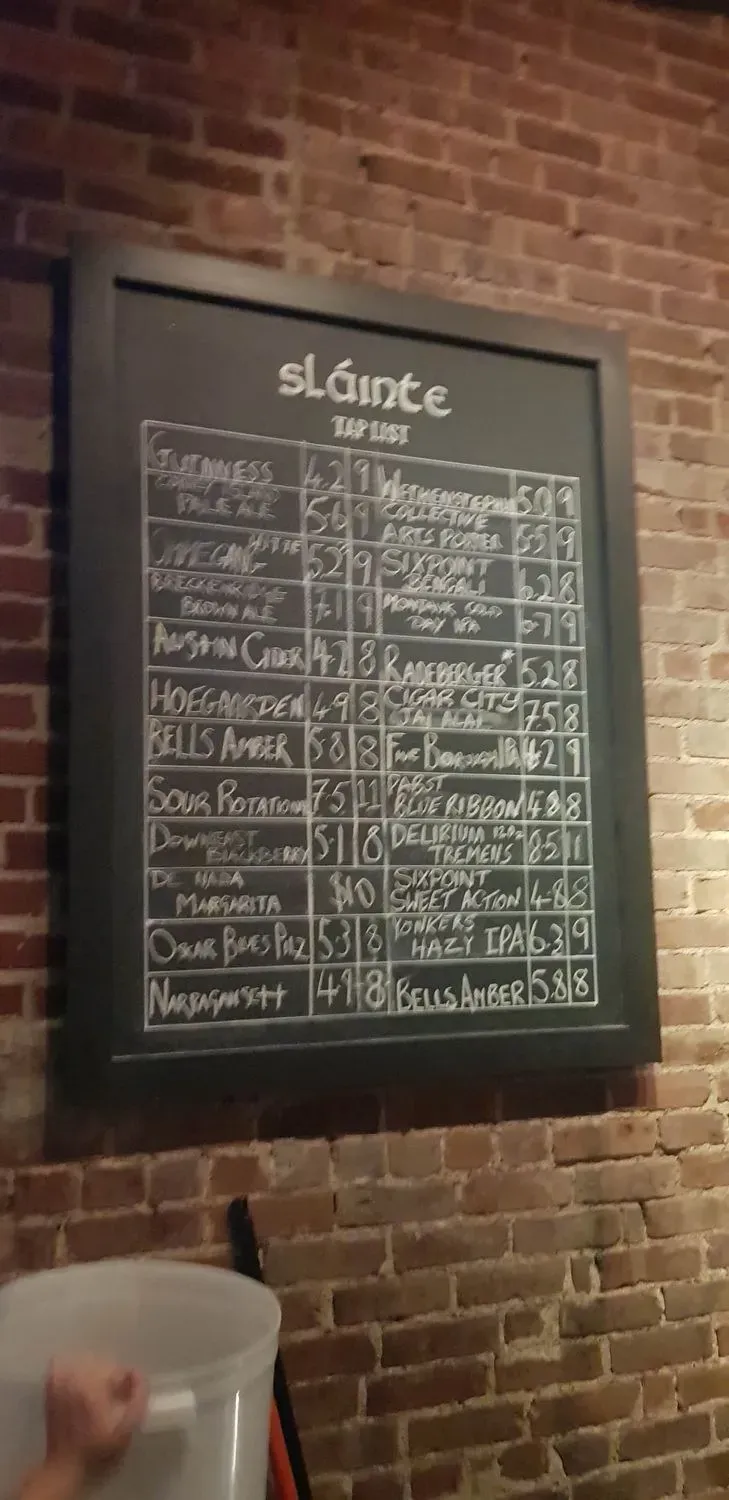 sláinte
TAP LIST
GUINNESS 4.2 9
CONEY ISLAND
PALE ALE 5.6 9
OMMEGANG WITTE 5.2 9
BRECKENRIDGE
BROWN ALE 7.1 9
AUSTIN CIDER 4.2 8
HOEGAARDEN 4.9 8
BELLS AMBER 5.8 8
SOUR ROTATION 7.5 11
DOWNEAST
BLACKBERRY 5.1 8
DE NADA
MARGARITA $10
OSKAR BLUES PILZ 5.3 8
NARRAGANSETT 4.9 8
5.0 9
COLLECTIVE
ARTS PORTER 5.5 9
SIXPOINT
BENGALI 6.2 8
MONTAUK COLD
DAY IPA 6.7 9
RADEBERGER* 5.2 8
CIGAR CITY
JAI ALAI 7.5 8
FIVE BOROUGH 4.2 9
PABST
BLUE RIBBON 4.8 8
DELIRIUM 12oz
TREMENS 8.5 11
SIXPOINT
SWEET ACTION 4.8 8
YONKERS
HAZY IPA 6.3 9
BELLS AMBER 5.8 8